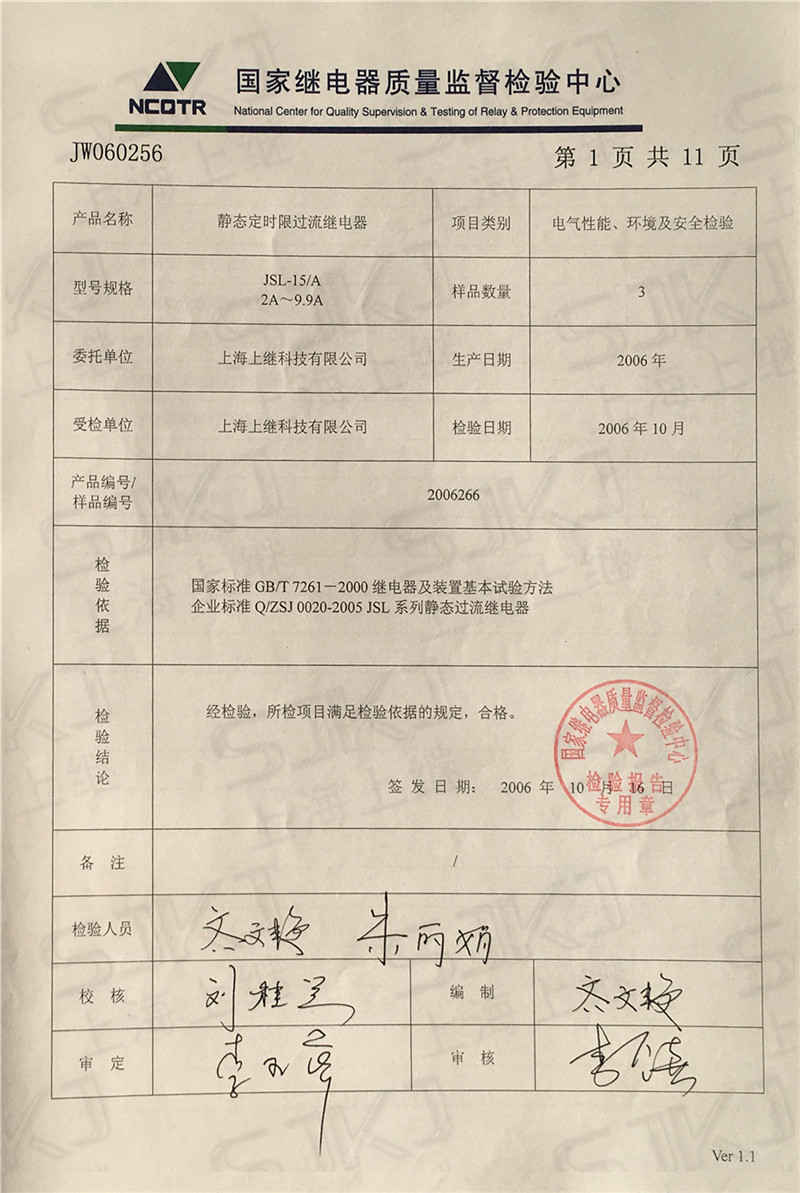 NCQTR
国家继电器质量监督检验中心
National Center for Quality Supervision & Testing of Relay & Protection Equipment
JW060256
第 1 页 共 11 页
产品名称
静态定时限过流继电器
项目类别
电气性能、环境及安全检验
型号规格
JSL-15/A
2A～9.9A
样品数量
3
委托单位
上海上继科技有限公司
生产日期
2006 年
受检单位
上海上继科技有限公司
检验日期
2006 年 10 月
产品编号/
样品编号
2006266
检
验
依
据
国家标准 GB/T 7261－2000 继电器及装置基本试验方法
企业标准 Q/ZSJ 0020-2005 JSL 系列静态过流继电器
检
验
结
论
经检验，所检项目满足检验依据的规定，合格。
签 发 日 期： 2006 年 10 月 16 日
国家继电器质量监督检验中心
检验报告
专用章
备 注
/
检验人员
齐文艳 朱丽娟
校 核
编 制
齐文艳
审 定
审 核
Ver 1.1